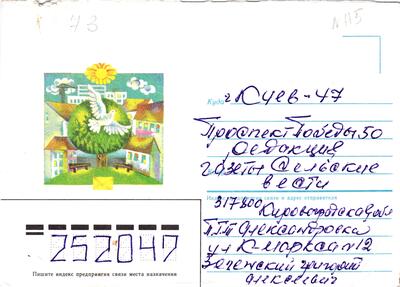 73
N 115
Куда г Киев-47
Проспект Победы 50
Редакция
газеты Сельские
вести
Индекс предприятия связи и адрес отправителя
317800 Кировоградская обл
ПГТ Александровка
ул К-Маркса 12
Григорий
Алексеевич
252047
Пишите индекс предприятия связи места назначения